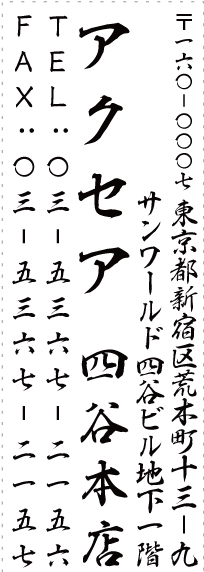 〒一六〇－〇〇〇七 東京都新宿区荒木町十三－九
サンワールド四谷ビル地下一階
アクセア 四谷本店
TEL：〇三－五三六七－二一五六
FAX：〇三－五三六七－二一五七